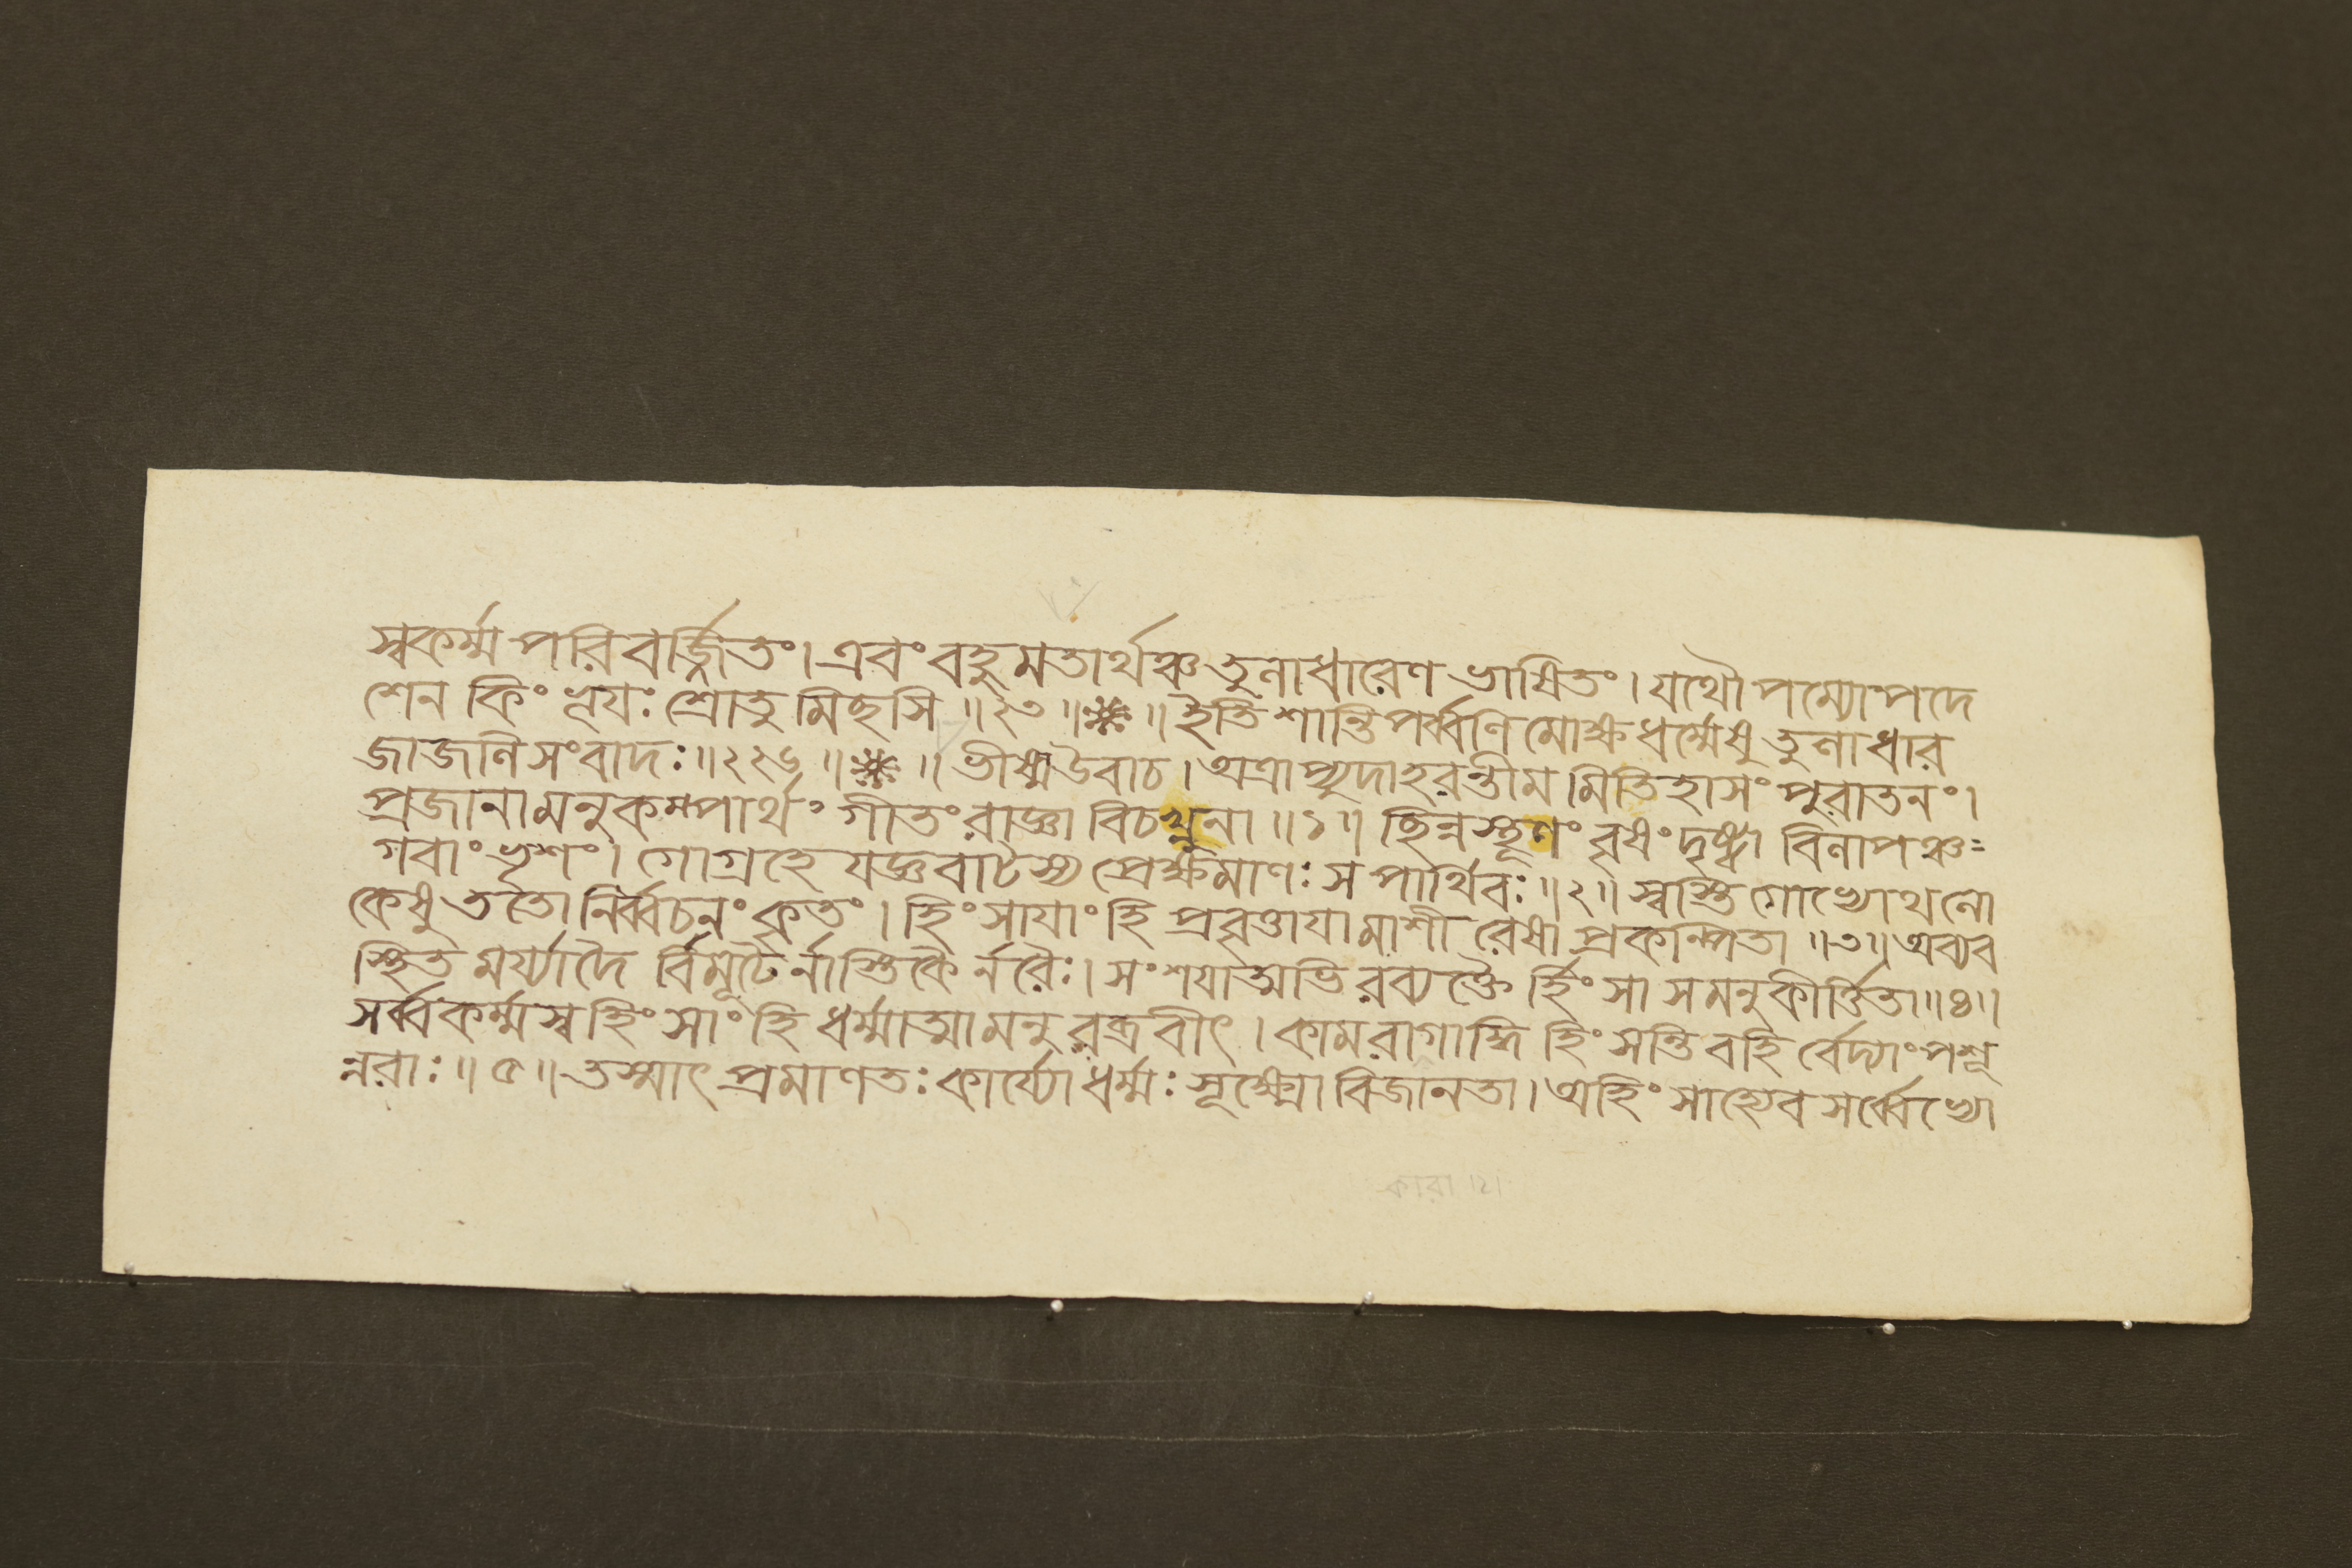 স্বকর্ম্ম পরিবর্জ্জিতং। এবং বহুমতার্থঞ্চ তুলাধারেণ ভাষিতং। যথৌপম্যোপদে
শেন কিং ভূয়ঃ শ্রোতুমিছসি ॥২৩॥ ॥ ইতি শান্তিপর্ব্বণি মোক্ষধর্ম্মেষু তুলাধার
জাজলিসংবাদঃ॥২২৬॥ ॥ ভীষ্ম উবাচ। অত্রাপ্যুদাহরন্তীমমিতিহাসং পুরাতনং।
প্রজানামনুকম্পার্থং গীতং রাজ্ঞা বিচখ্নুনা ॥১॥ ছিন্নস্থূণং বৃষং দৃষ্ট্বা বিলাপঞ্চ
গবাং ভৃশং। গোগ্রহে যজ্ঞবাটস্য প্রেক্ষমাণঃ স পার্থিবঃ॥২॥ স্বস্তি গোভ্যোথ লো
কেষু ততো নির্ব্বচনং কৃতং। হিংসাযাং হি প্রবৃত্তাযামাশীরেষা প্রকল্পিতা ॥৩॥ অব্যব
স্থিতমর্য্যাদৈর্বিমূঢৈর্নাস্তিকৈর্নরৈঃ। সংশযাত্মভিরব্যক্তৈর্হিংসা সমনুকীর্ত্তিতা॥৪॥
সর্ব্বকর্ম্মস্বহিংসাং হি ধর্ম্মাত্মা মনুরব্রবীৎ। কামরাগাদ্বিহিংসন্তি বহির্বেদ্যাং পশূ
ন্নরাঃ॥৫॥ তস্মাৎ প্রমাণতঃ কার্য্যো ধর্ম্মঃ সূক্ষ্মো বিজানতা। অহিংসাহ্যেব সর্ব্বেভ্যো